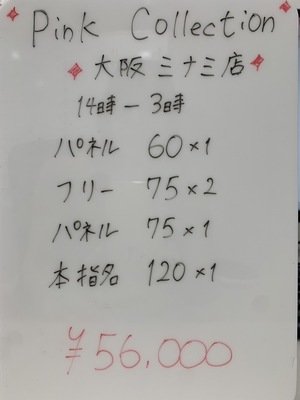 Pink Collection
大阪ミナミ店
14時－3時
パネル 60×1
フリー 75×2
パネル 75×1
本指名 120×1
¥56,000